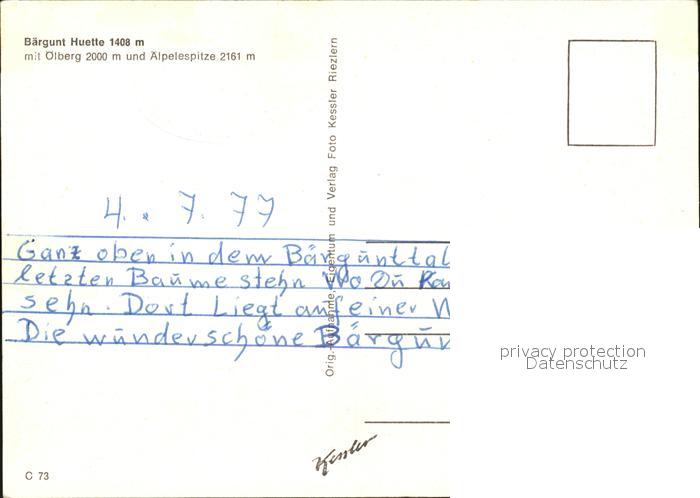 Bärgunt Huette 1408 m
mit Ölberg 2000 m und Älpelespitze 2161 m
Orig.-Aufnahme, Eigentum und Verlag Foto Kessler Riezlern
4. 7. 77
Ganz oben in dem Bärgunttal
letzten Baume stehn Wo Du
sehn. Dort Liegt auf einer
Die wunderschöne
privacy protection
Datenschutz
Kessler
C 73